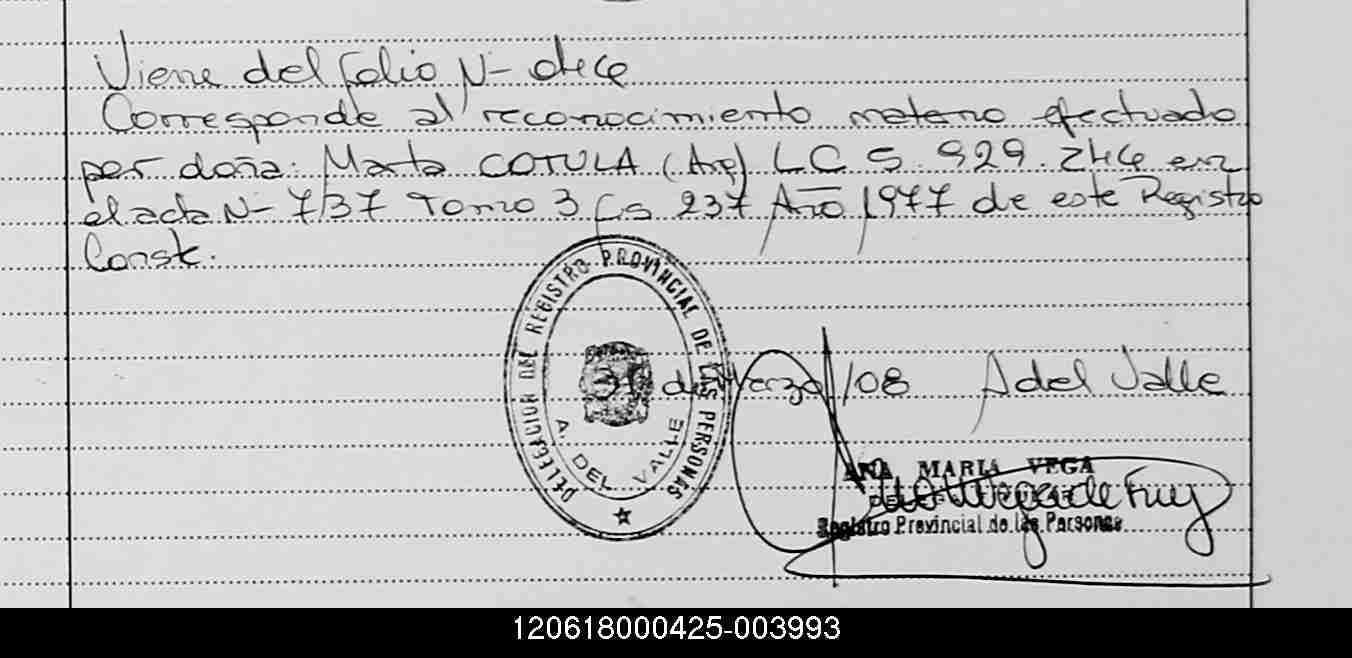 Viene del folio N- once
Corresponde al reconocimiento materno efectuado
por doña: Marta COTULA (Arg) LC 5.929.246 en
el acta N- 737 Tomo 3 fs 237 Año 1977 de este Registro
Conste.
DELEGACION DEL REGISTRO PROVINCIAL DE LAS PERSONAS
A. DEL VALLE
de Marzo /08 A del Valle
ANA MARIA VEGA
Registro Provincial de las Personas
120618000425-003993